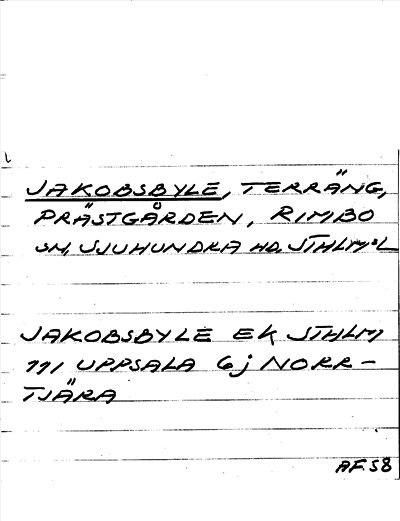 JAKOBSBYLE, TERRÄNG,
PRÄSTGÅRDEN, RIMBO
SN, SJUHUNDRA HD, STHLMS L
JAKOBSBYLE EK STHLM
111 UPPSALA 6j NORR-
TJÄRA
AF. 58